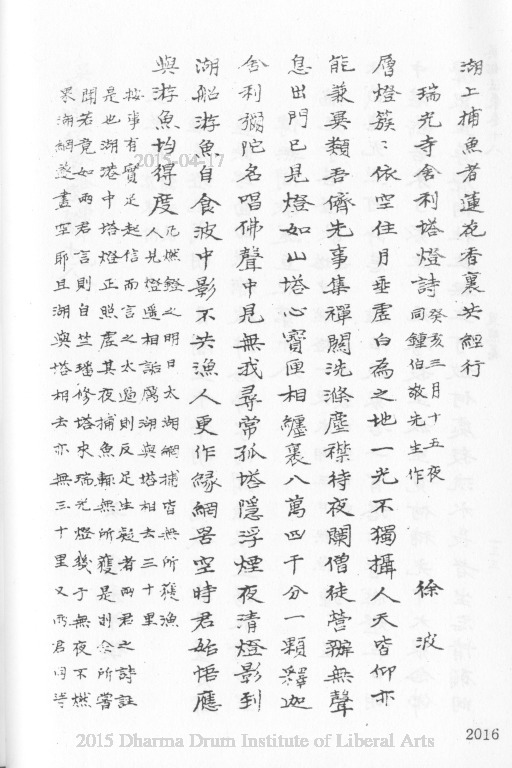 湖上捕魚者蓮花香裏共經行
瑞光寺舍利塔燈詩 癸亥三月十五夜
同鍾伯敬先生作
徐波
層燈簇〻依空住月垂虛白為之地一光不獨攝人天皆仰亦
能兼異類吾儕先事集禪關洗滌塵襟待夜闌僧徒營辦無聲
息出門已見燈如山塔心寶匣相纏裹八萬四千分一顆釋迦
舍利彌陀名唱佛聲中見無我尋常孤塔隱浮煙夜清燈影到
湖船游魚自食波中影不共漁人更作緣網罟空時君始悟應
與游魚均得度 凡燃燈之明日太湖網捕皆無所獲漁
人見燈遥相詬厲湖與塔相去三十里
按事有實足起信而言之太過則反足生疑者兩君之詩註
是也湖港中塔燈正照處其夜捕魚輒無所獲是則余所嘗
聞若竟如兩君言則自竺璠修塔來瑞光燈幾于無夜不燃
果湖網遂盡空耶且湖與塔相去亦無三十里又兩君同時
2015-04-17
2016
2015 Dharma Drum Institute of Liberal Arts